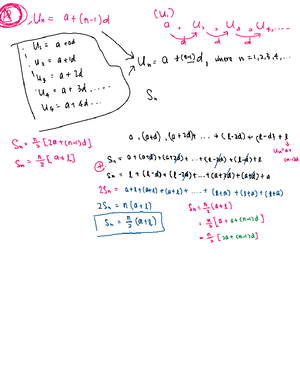 Uₙ = a + (n-1)d
(U₁)
a . U₂ . U₃ . U₄, ....
d d d
U₁ = a + 0d
U₂ = a + 1d
U₃ = a + 2d
U₄ = a + 3d .....
U₄ = a + 4d ...
Uₙ = a + (n-1)d, where n = 1,2,3,4,...
Sₙ
Sₙ = n/2 [2a + (n-1)d]
Sₙ = n/2 [a + l]
a . (a+d) . (a+2d) + ... + (l-2d) + (l-d) + l
Sₙ = a + (a+d) + (a+2d) + ... + (l-2d) + (l-d) + l
Sₙ = l + (l-d) + (l-2d) + ... + (a+2d) + (a+d) + a
2Sₙ = a+l + (a+l) + (a+l) + .... + (l+a) + (l+a) + (l+a)
2Sₙ = n(a+l)
Sₙ = n/2 (a+l)
Sₙ = n/2 (a+l)
= n/2 [a + a + (n-1)d]
= n/2 [2a + (n-1)d]